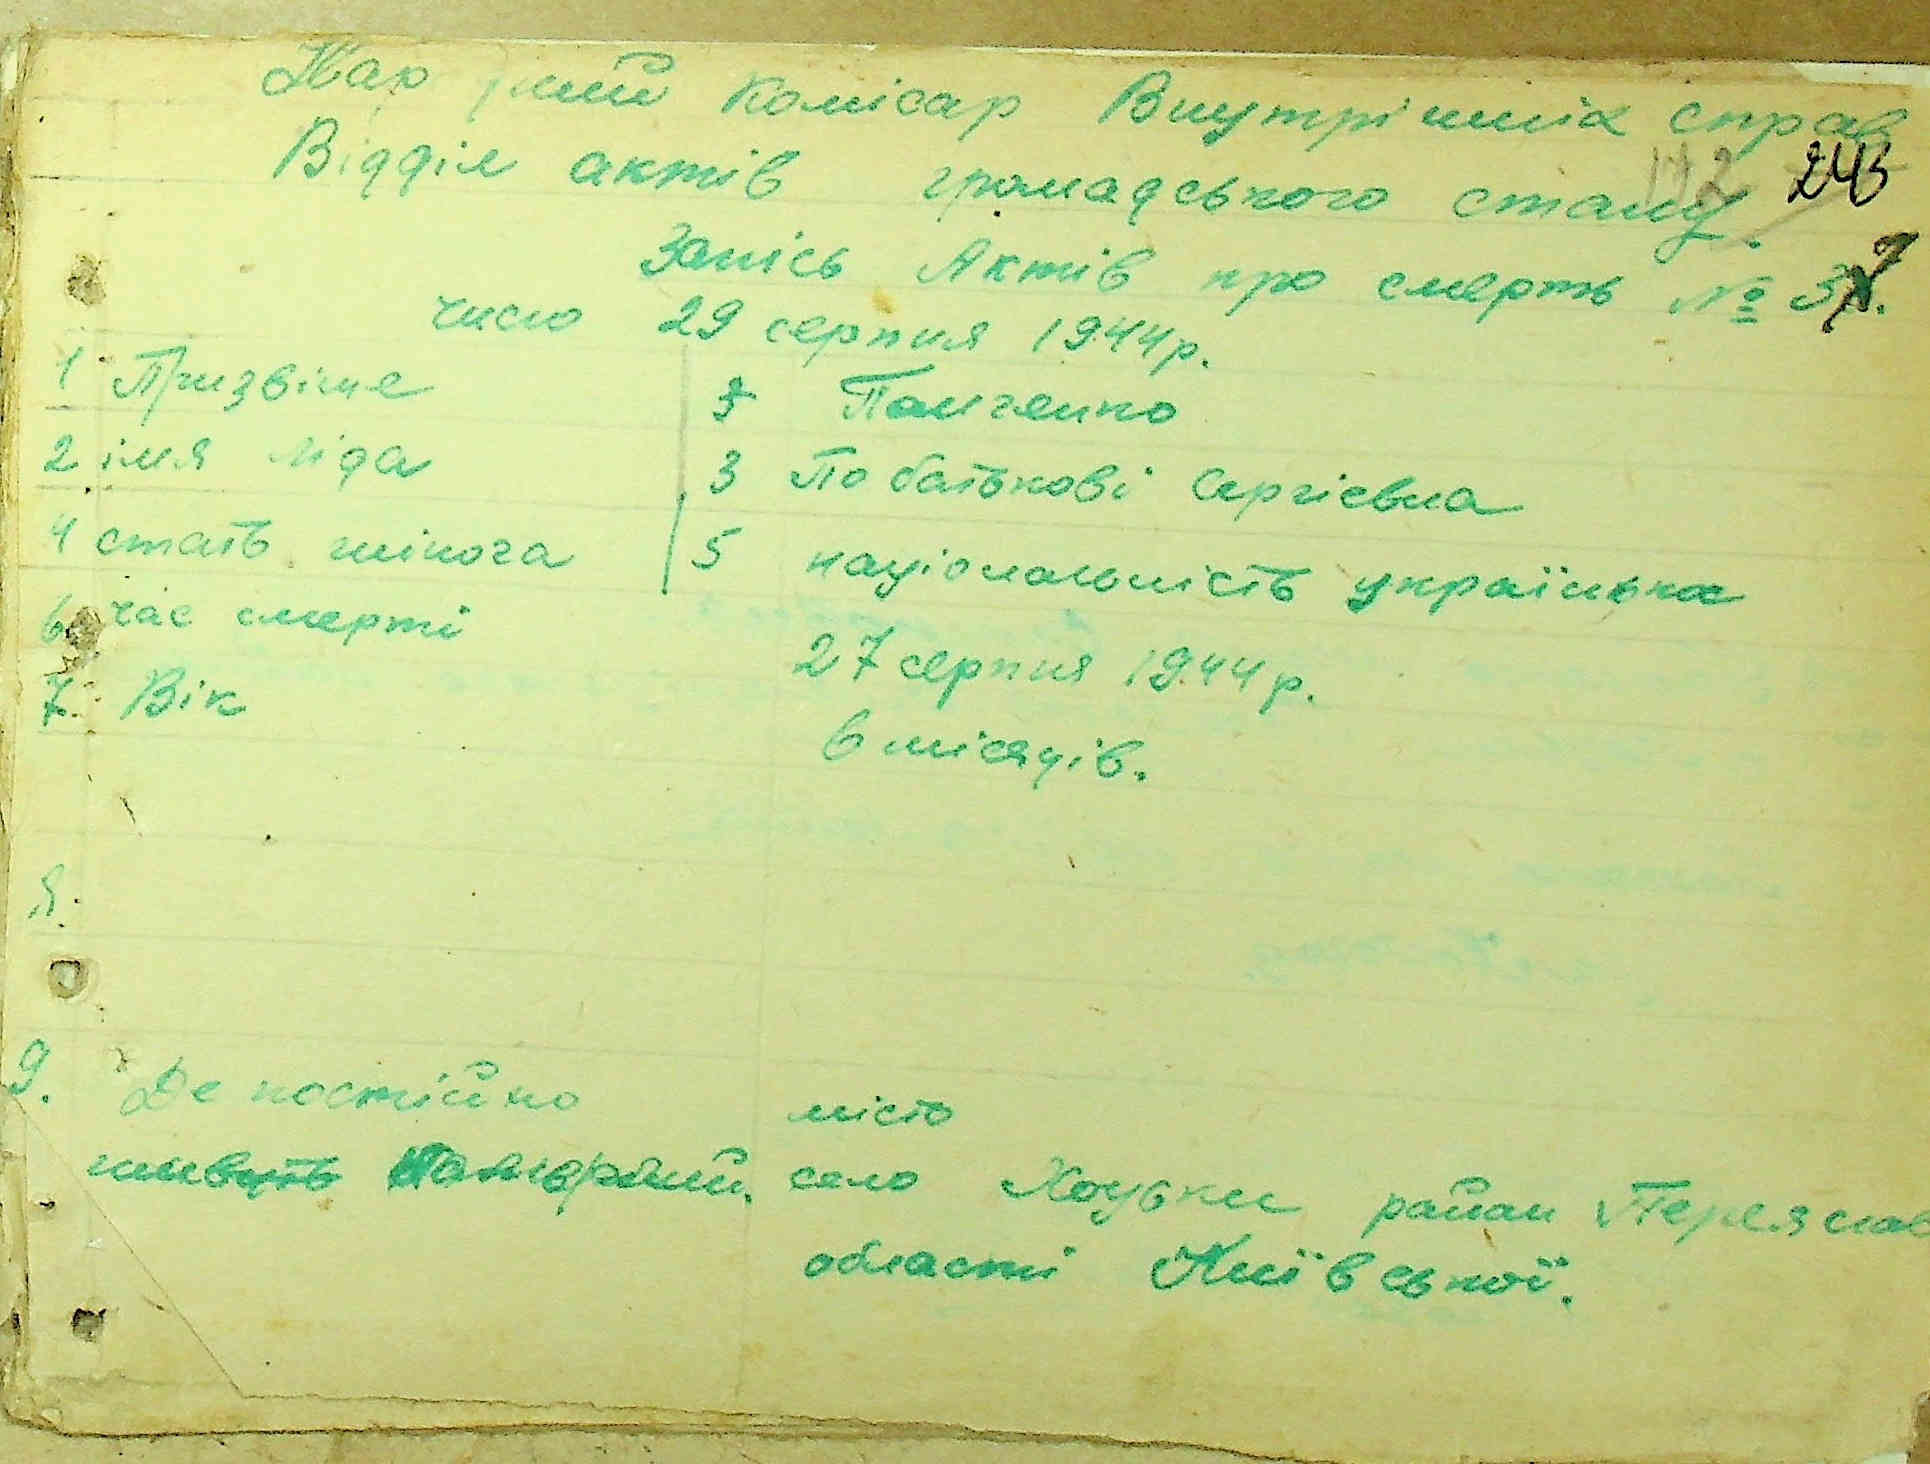 Комісар Внутрішніх справ
Відділ актів громадського стану. 243
Запісь Актів про смерть №
число 29 серпня 1944 р.
1 Призвіще Панченко
2 імя Ліда 3 По батькові Сергієвна
4 стать жіноча 5 національність українка
6 час смерті 27 серпня 1944 р.
7. Вік 6 місяців.
8.
9. Де постійно місто
село Хоцьки район Переяслав
області Київської.